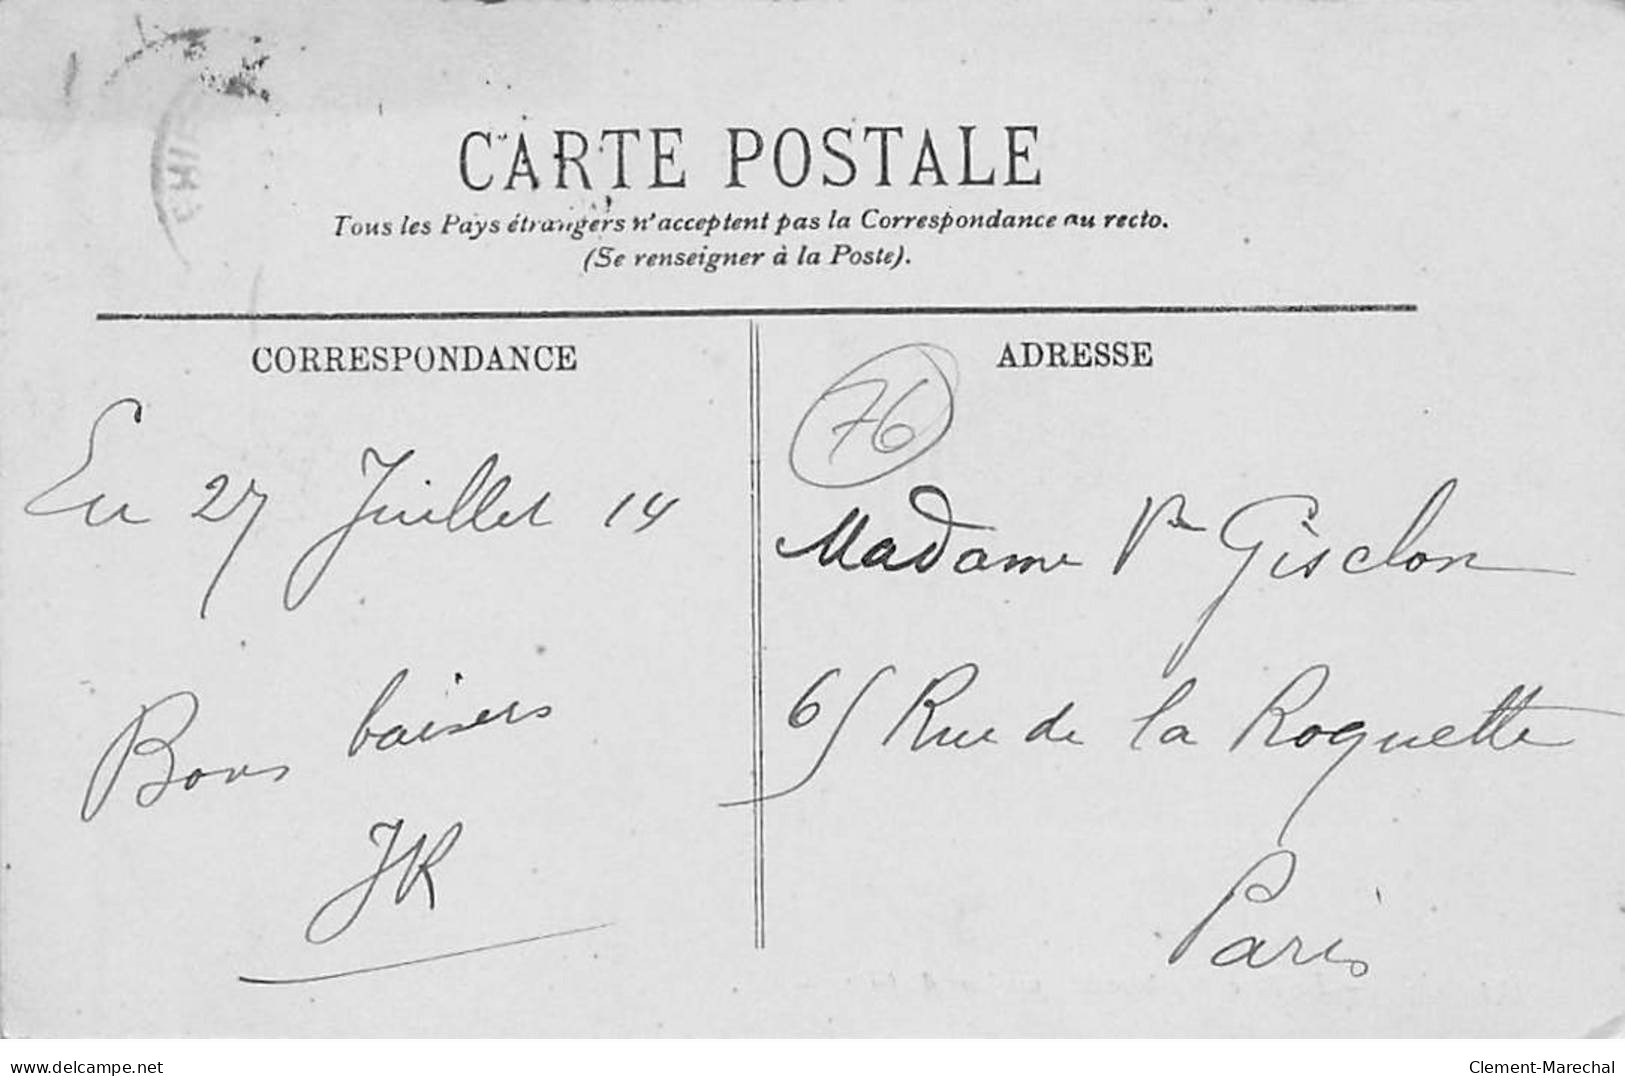 CARTE POSTALE
Tous les Pays étrangers n'acceptent pas la Correspondance au recto.
(Se renseigner à la Poste).
CORRESPONDANCE
Eu 27 Juillet 14
Bons baisers
JK
ADRESSE
76
Madame Vve Gisclon
65 Rue de la Roquette
Paris
www.delcampe.net
Clement-Marechal